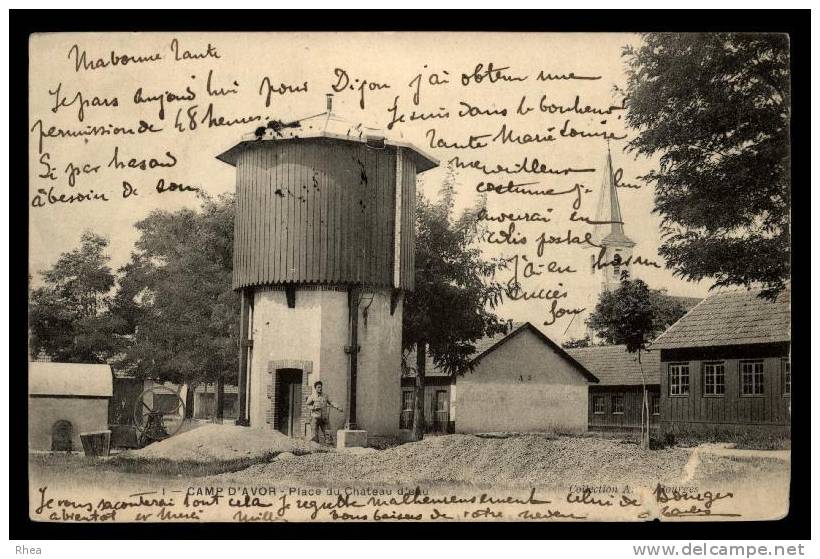 Ma bonne Tante
Je pars aujourd'hui pour Dijon j'ai obtenu une
permission de 48 heures
Je suis dans le bonheur
Tante Marie Louise
Si par hasard
à besoin de son
merveilleux
costume je lui
enverrai en
colis postal
j'ai en
succès
fou
1 - CAMP D'AVOR - Place du Château d'eau
Collection A. Bourges
Je vous raconterai tout cela je regrette malheureusement celui de Bourges
à bientôt et merci Mille bons baisers de votre neveu Charles
www.delcampe.net / Rhea